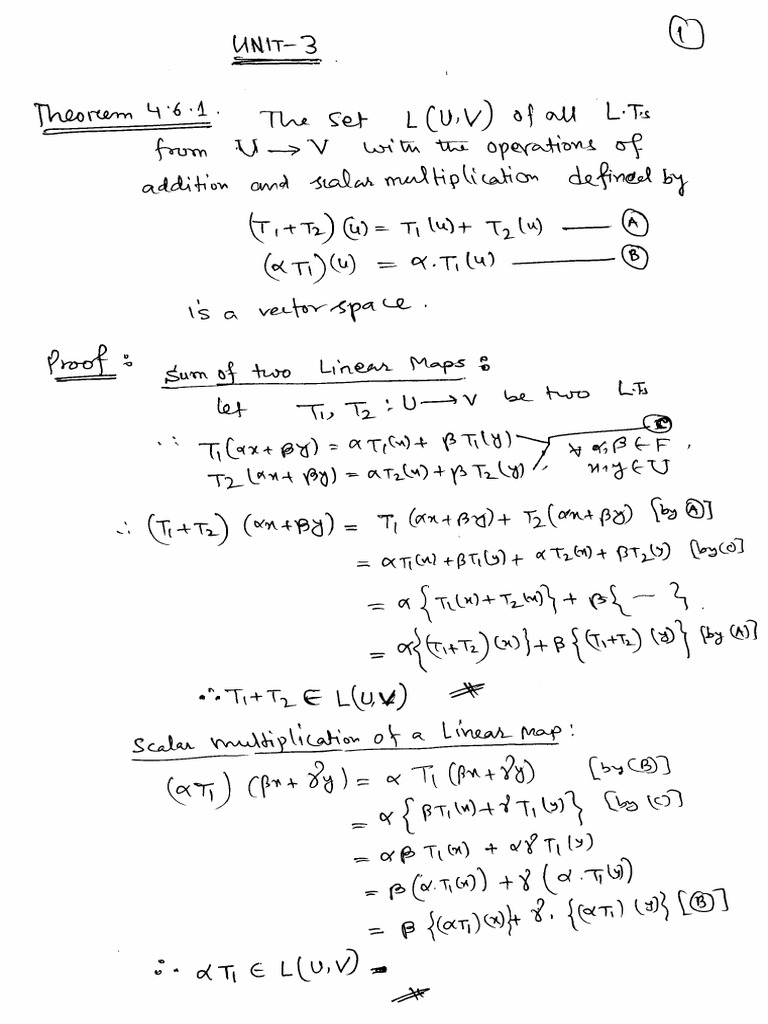 UNIT-3
①
Theorem 4.6.1. The set L(U,V) of all L.Ts
from U → V with the operations of
addition and scalar multiplication defined by
(T₁+T₂)(u) = T₁(u) + T₂(u) — Ⓐ
(αT₁)(u) = α.T₁(u) — Ⓑ
is a vector space.
Proof : Sum of two Linear Maps :
Let T₁, T₂ : U → V be two L.Ts
∵ T₁(αx+βy) = αT₁(x) + βT₁(y) — Ⓒ
T₂(αx+βy) = αT₂(x) + βT₂(y) ∀ α,β ∈ F, x,y ∈ U
∴ (T₁+T₂)(αx+βy) = T₁(αx+βy) + T₂(αx+βy) [by Ⓐ]
= αT₁(x) + βT₁(y) + αT₂(x) + βT₂(y) [by C]
= α{T₁(x)+T₂(x)} + β{ — }.
= α{(T₁+T₂)(x)} + β{(T₁+T₂)(y)} [by (A)]
∴ T₁+T₂ ∈ L(U,V)
Scalar multiplication of a Linear Map:
(αT₁)(βx+γy) = α T₁(βx+γy) [by (B)]
= α{βT₁(x)+γT₁(y)} [by (C)]
= αβ T₁(x) + αγ T₁(y)
= β(α.T₁(x)) + γ(α.T₁(y)
= β{(αT₁)(x)} + γ.{(αT₁)(y)} [Ⓑ]
∴ αT₁ ∈ L(U,V)